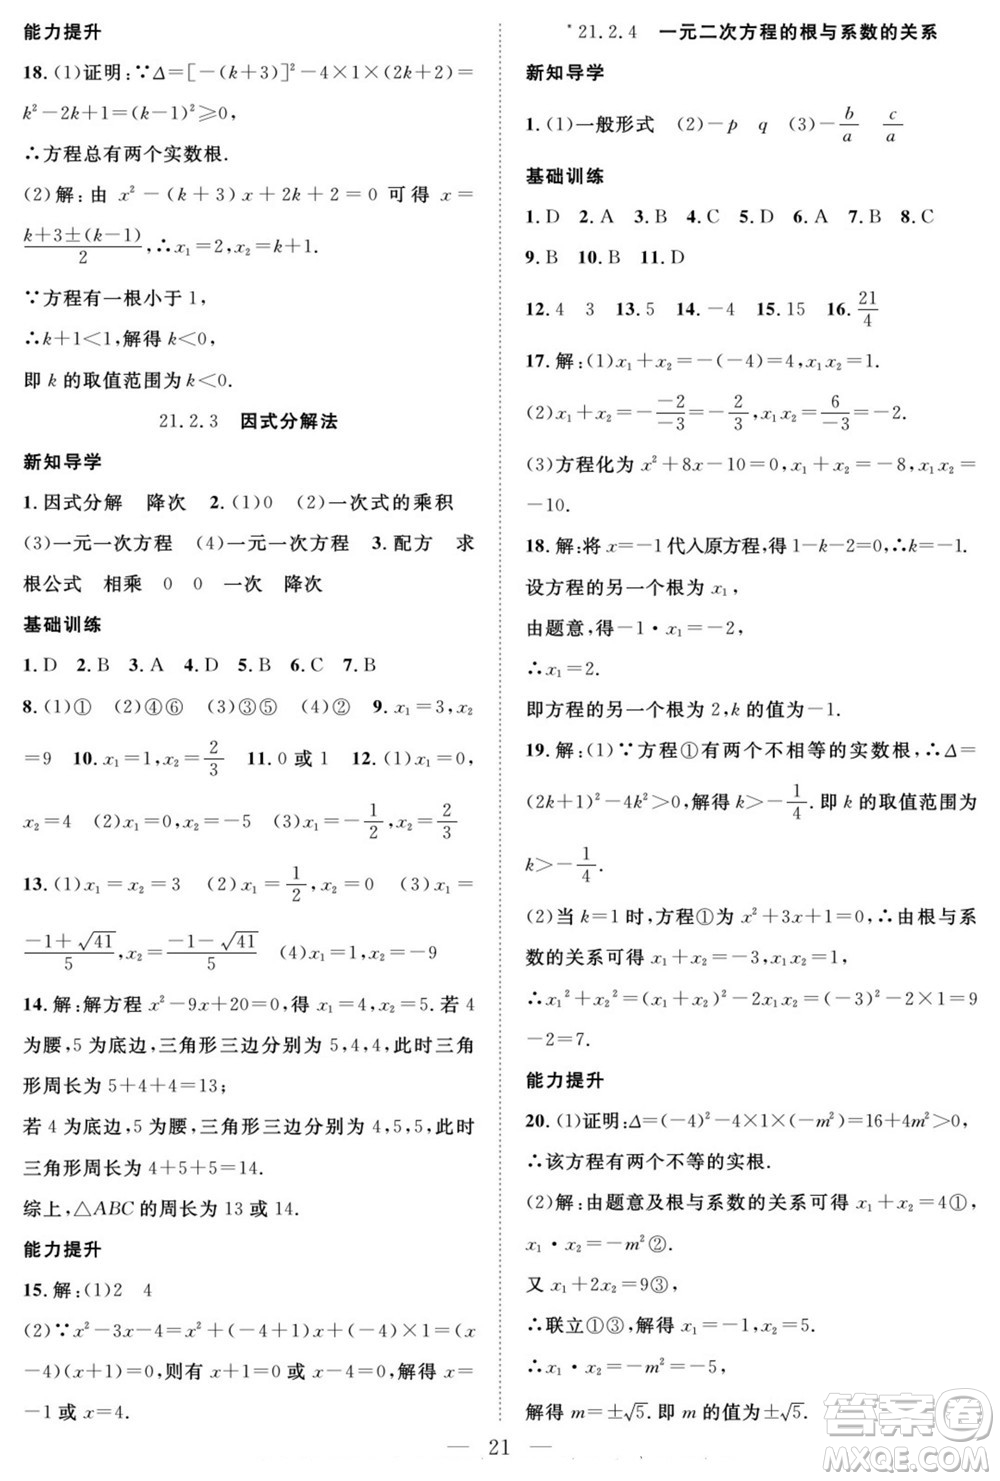 能力提升
18.(1)证明:∵Δ=[-(k+3)]²-4×1×(2k+2)=
k²-2k+1=(k-1)²≥0,
∴方程总有两个实数根.
(2)解:由 x²-(k+3)x+2k+2=0 可得 x=
\frac{k+3±(k-1)}{2},∴x₁=2,x₂=k+1.
∵方程有一根小于1,
∴k+1<1,解得k<0.
即k的取值范围为k<0.
21.2.3 因式分解法
新知导学
1.因式分解 降次 2.(1)0 (2)一次式的乘积
(3)一元一次方程 (4)一元一次方程 3.配方 求
根公式 相乘 0 0 一次 降次
基础训练
1.D 2.B 3.A 4.D 5.B 6.C 7.B
8.(1)① (2)④⑥ (3)③⑤ (4)② 9.x₁=3,x₂
=9 10.x₁=1,x₂=\frac{2}{3} 11.0或1 12.(1)x₁=0,
x₂=4 (2)x₁=0,x₂=-5 (3)x₁=-\frac{1}{2},x₂=\frac{2}{3}
13.(1)x₁=x₂=3 (2)x₁=\frac{1}{2},x₂=0 (3)x₁=
\frac{-1+\sqrt{41}}{5},x₂=\frac{-1-\sqrt{41}}{5} (4)x₁=x₂=-9
14.解:解方程x²-9x+20=0,得x₁=4,x₂=5.若4
为腰,5为底边,三角形三边分别为5,4,4,此时三角
形周长为5+4+4=13;
若4为底边,5为腰,三角形三边分别为4,5,5,此时
三角形周长为4+5+5=14.
综上,△ABC的周长为13或14.
能力提升
15.解:(1)2 4
(2)∵x²-3x-4=x²+(-4+1)x+(-4)×1=(x
-4)(x+1)=0,则有x+1=0或x-4=0,解得x=
-1或x=4.
*21.2.4 一元二次方程的根与系数的关系
新知导学
1.(1)一般形式 (2)-p q (3)-\frac{b}{a} \frac{c}{a}
基础训练
1.D 2.A 3.B 4.C 5.D 6.A 7.B 8.C
9.B 10.B 11.D
12.4 3 13.5 14.-4 15.15 16.\frac{21}{4}
17.解:(1)x₁+x₂=-(-4)=4,x₁x₂=1.
(2)x₁+x₂=-\frac{-2}{-3}=-\frac{2}{3},x₁x₂=\frac{6}{-3}=-2.
(3)方程化为x²+8x-10=0,x₁+x₂=-8,x₁x₂=
-10.
18.解:将x=-1代入原方程,得1-k-2=0,∴k=-1.
设方程的另一个根为x₁,
由题意,得-1·x₁=-2,
∴x₁=2.
即方程的另一个根为2,k的值为-1.
19.解:(1)∵方程①有两个不相等的实数根,∴Δ=
(2k+1)²-4k²>0,解得k>-\frac{1}{4}.即k的取值范围为
k>-\frac{1}{4}.
(2)当k=1时,方程①为x²+3x+1=0,∴由根与系
数的关系可得x₁+x₂=-3,x₁x₂=1,
∴x₁²+x₂²=(x₁+x₂)²-2x₁x₂=(-3)²-2×1=9
-2=7.
能力提升
20.(1)证明:Δ=(-4)²-4×1×(-m²)=16+4m²>0,
∴该方程有两个不等的实根.
(2)解:由题意及根与系数的关系可得x₁+x₂=4①,
x₁·x₂=-m²②.
又x₁+2x₂=9③,
∴联立①③,解得x₁=-1,x₂=5.
∴x₁·x₂=-m²=-5,
解得m=±\sqrt{5}.即m的值为±\sqrt{5}.
— 21 —
答案圈
MXQE.COM